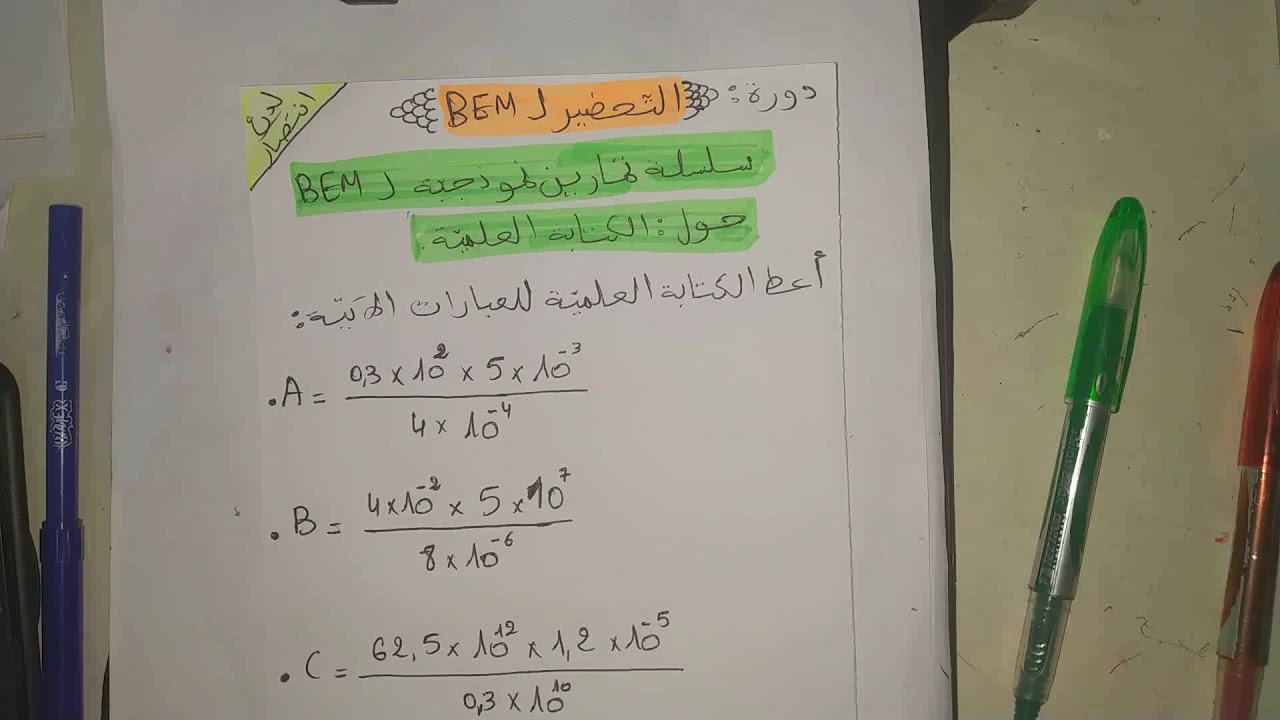 دورة: التحضير لـ BEM
لدى انتصار
سلسلة تمارين نموذجية لـ BEM
حول: الكتابة العلميّة
أعط الكتابة العلميّة للعبارات الآتيّة:
• A = (0,3 × 10² × 5 × 10⁻³) / (4 × 10⁻⁴)
• B = (4 × 10⁻² × 5 × 10⁷) / (8 × 10⁻⁶)
• C = (62,5 × 10¹² × 1,2 × 10⁻⁵) / (0,3 × 10¹⁰)